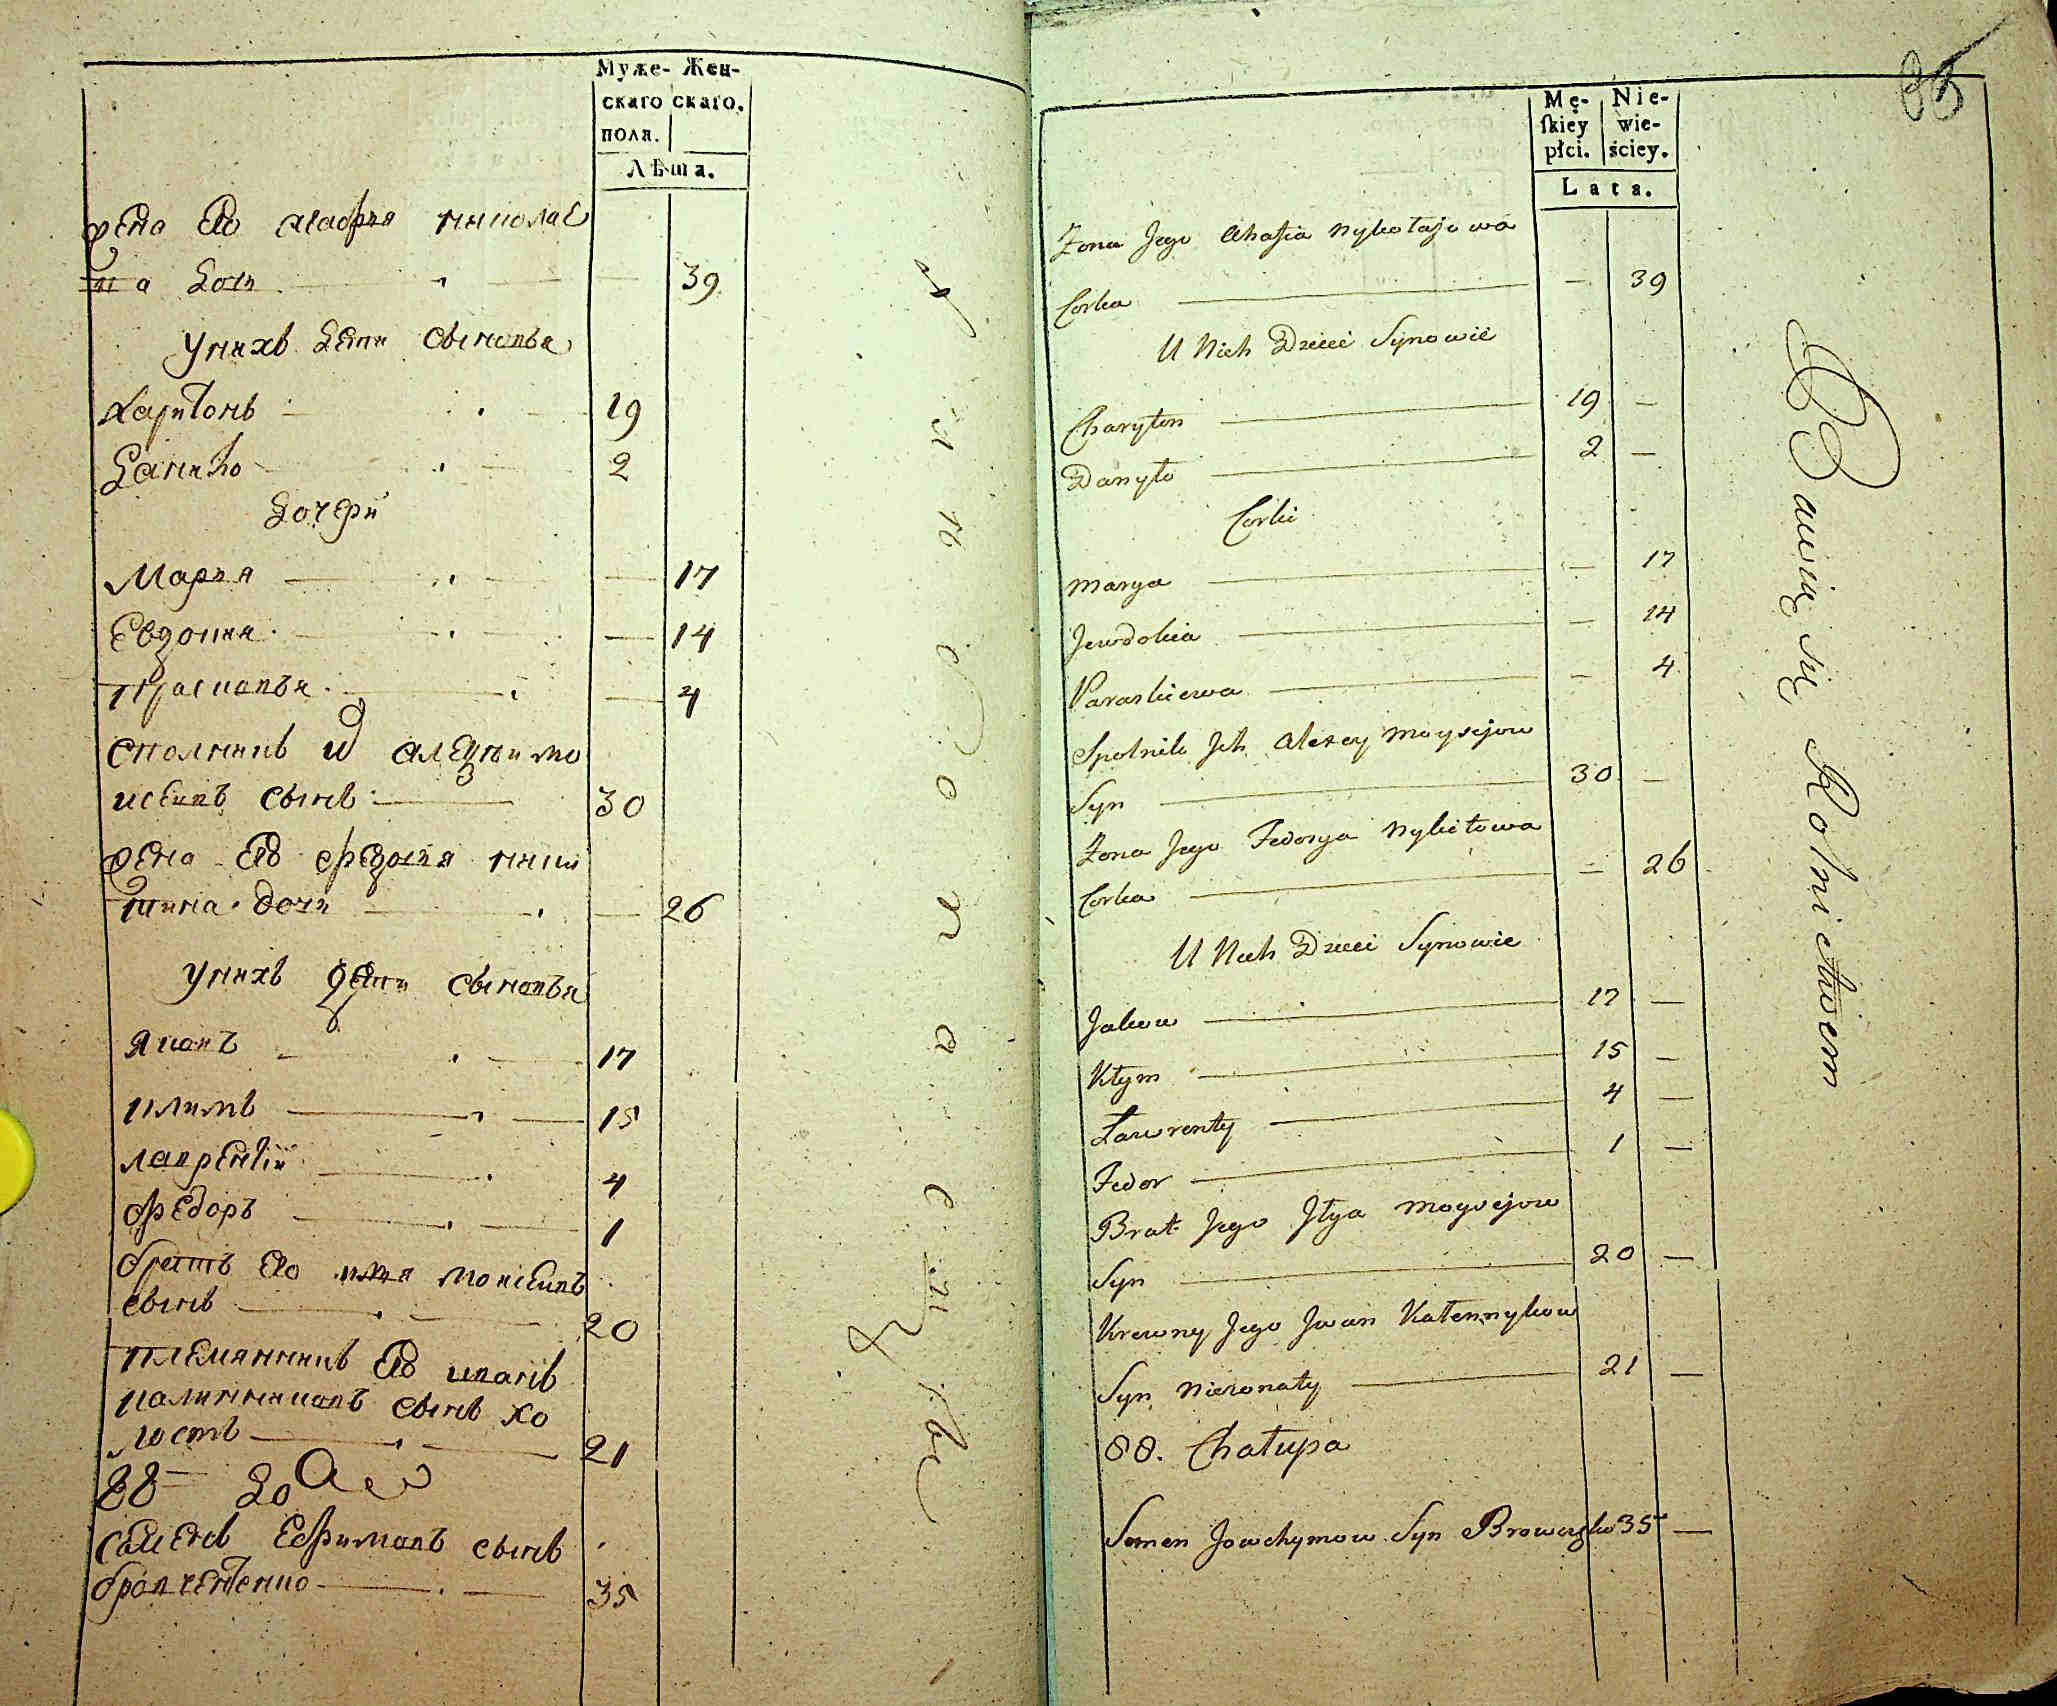 Муже- Жен-
скаго скаго.
поля.
Лѣта.
жена Его Агафия николае
ва дочь 39
У нихъ дети сыновья
Харитонъ 19
Данило 2
дочери
Марья 17
Евдокия 14
Прасковья 4
сполникъ их Алексѣй мо
исеивъ сынъ 30
жена Его Федосья ники
тина дочь 26
У нихъ дети сыновья
Яковъ 17
Климъ 15
Лаврентiй 4
Федоръ 1
братъ Его илья моисеивъ
сынъ 20
племянникъ Его иванъ
калинниковъ сынъ хо
лостъ 21
88 дом
Семенъ Ефимовъ сынъ
бровченъенко 35
85
Mę- Nie-
ſkiey wie-
płci. ściey.
Lata.
Zona Jego Ahafia Nykołajowa
Corka — 39
U Nich Dzieci Synowie
Charyton 19 —
Danyło 2 —
Corki
Marya — 17
Jewdokia — 14
Paraskiewa — 4
Spolnik Jch Alexey Moysejow
Syn 30 —
Zona Jego Fedosya Nykitowa
Corka — 26
U Nich Dzieci Synowie
Jakow 17 —
Kłym 15 —
Ławrenty 4 —
Fedor 1 —
Brat Jego Jłya Moysejow
Syn 20 —
Krewny Jego Jwan Kałennykow
Syn Niezonaty 21 —
88. Chałupa
Semen Jowchymow Syn 35 —
Bawią się Rolnictwem